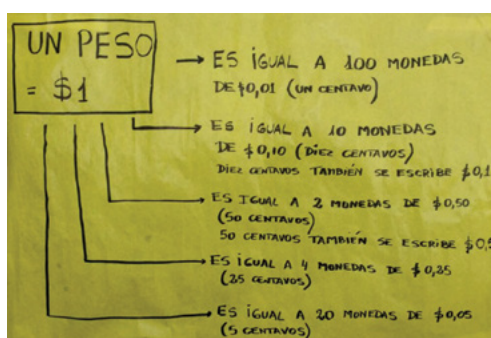 UN PESO
= $1
ES IGUAL A 100 MONEDAS
DE $0,01 (UN CENTAVO)
ES IGUAL A 10 MONEDAS
DE $0,10 (DIEZ CENTAVOS)
DIEZ CENTAVOS TAMBIÉN SE ESCRIBE $0,1
ES IGUAL A 2 MONEDAS DE $0,50
(50 CENTAVOS)
50 CENTAVOS TAMBIÉN SE ESCRIBE $0,5
ES IGUAL A 4 MONEDAS DE $0,25
(25 CENTAVOS)
ES IGUAL A 20 MONEDAS DE $0,05
(5 CENTAVOS)